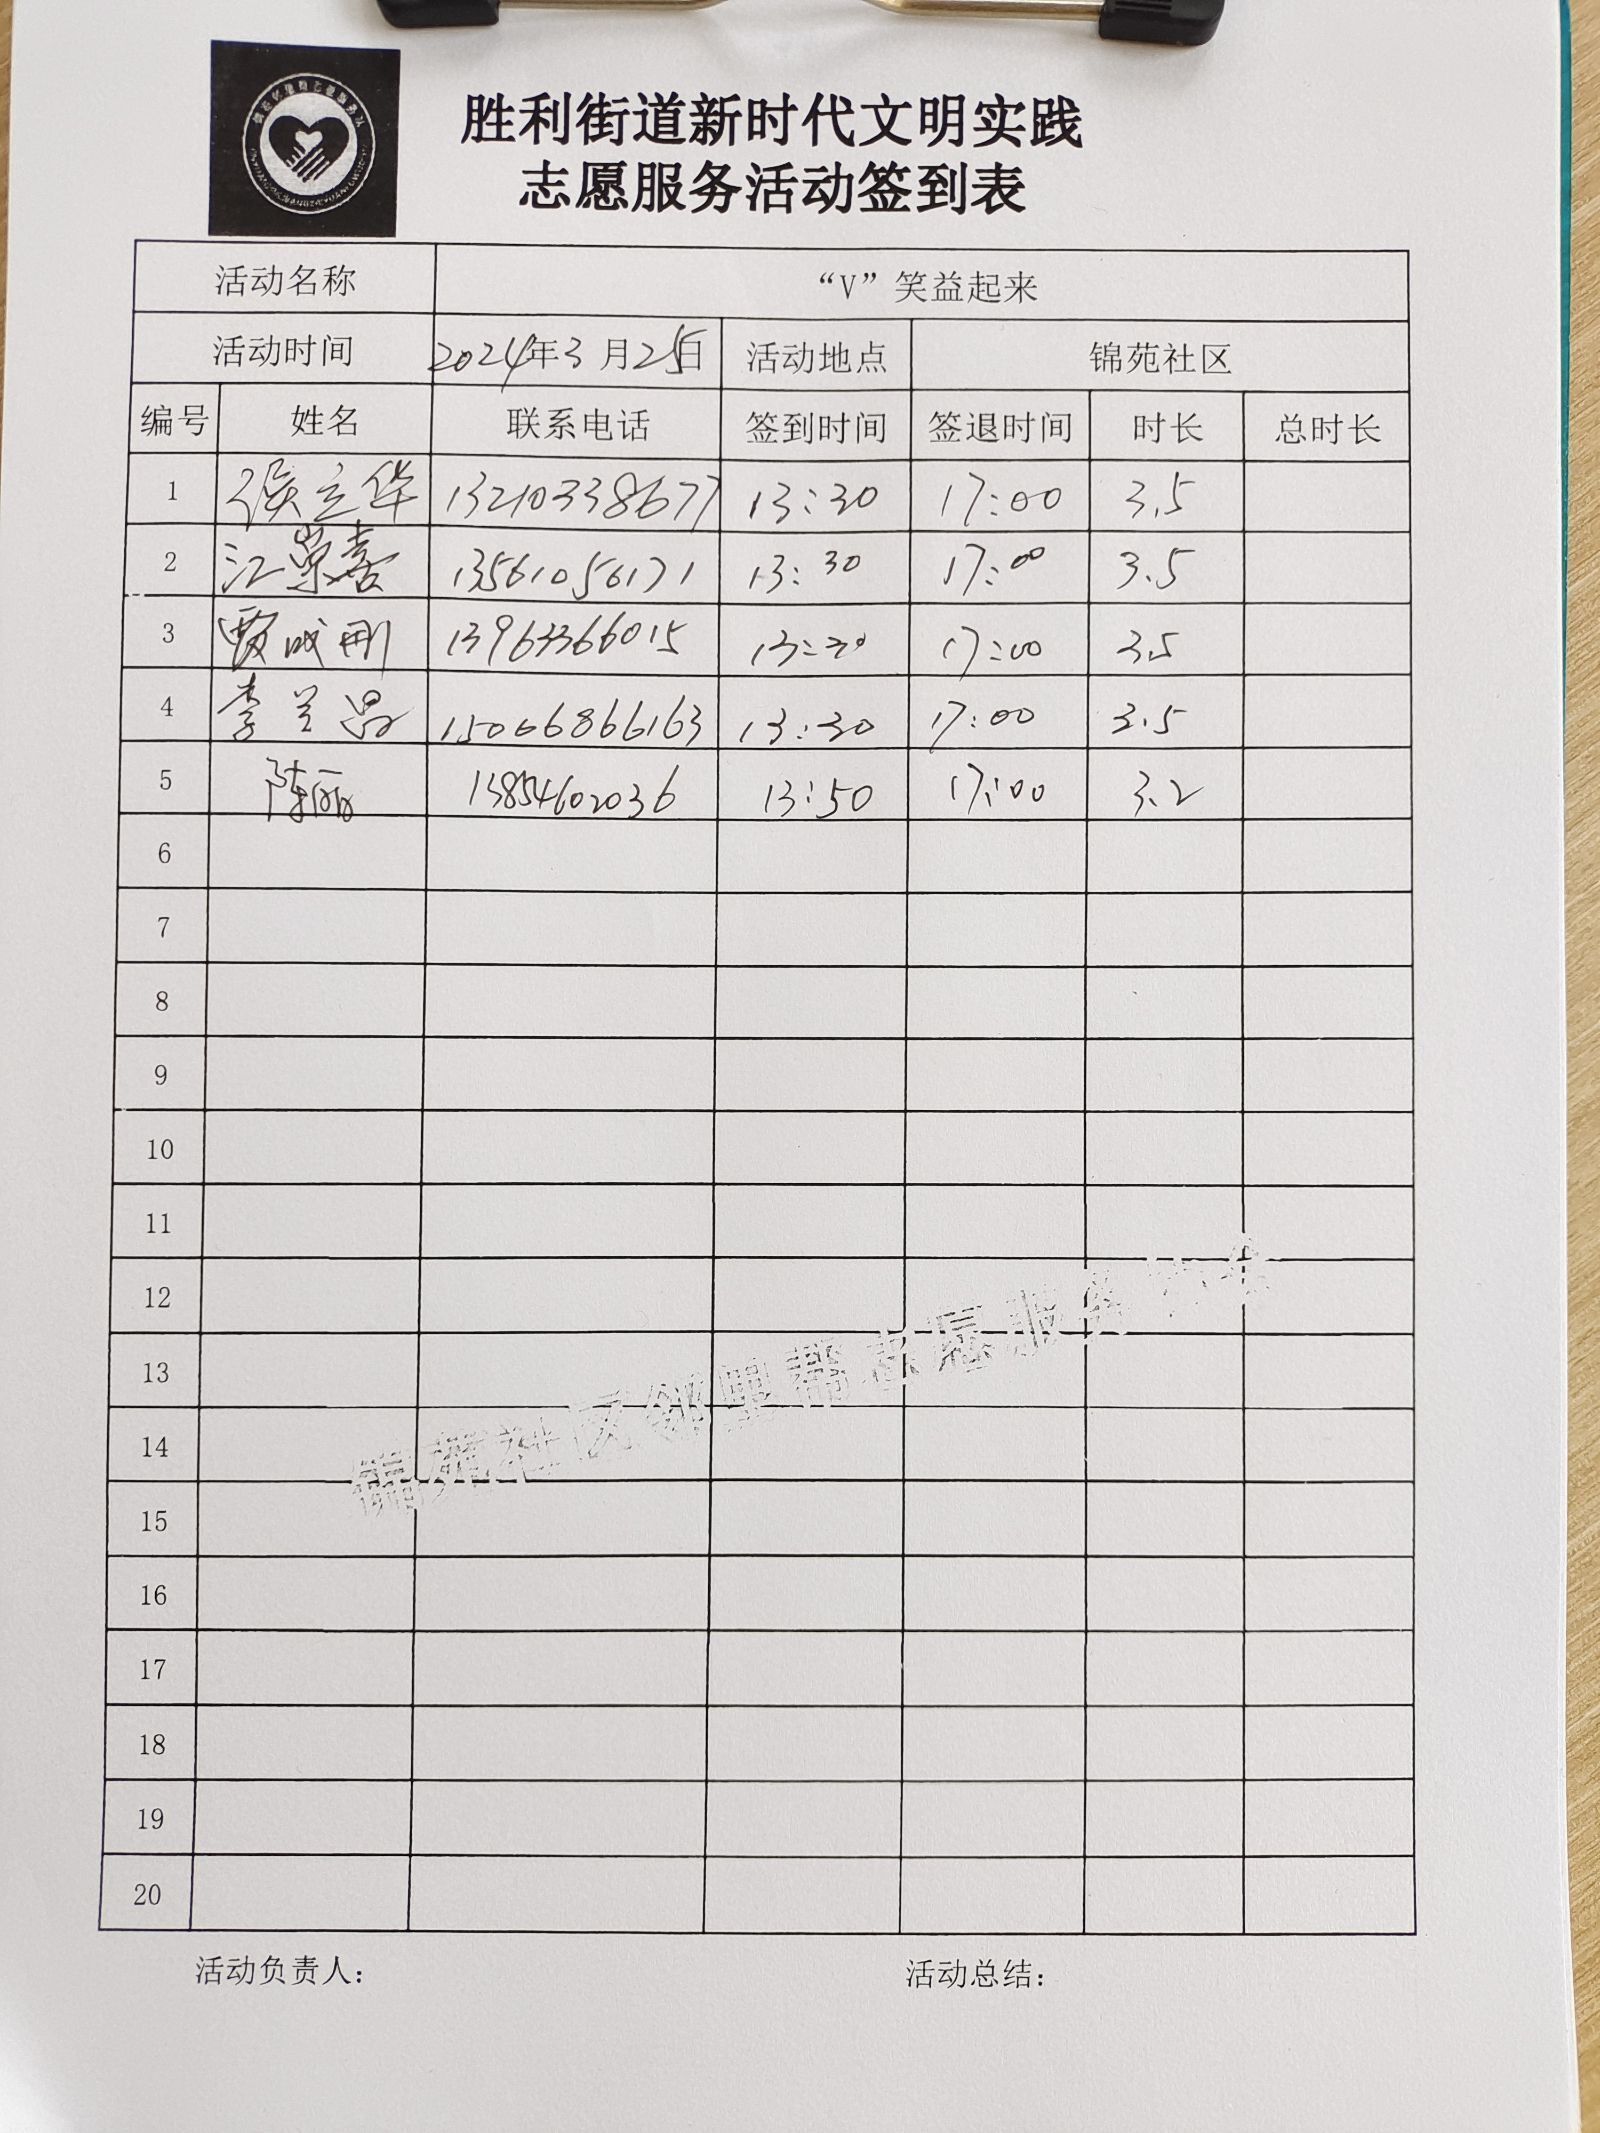 胜利街道新时代文明实践
志愿服务活动签到表
活动名称 “V”笑益起来
活动时间 2024年3月25日 活动地点 锦苑社区
编号 姓名 联系电话 签到时间 签退时间 时长 总时长
1 侯立华 13210338677 13:30 17:00 3.5
2 江崇喜 13561056171 13:30 17:00 3.5
3 贾成刚 13963366015 13:30 17:00 3.5
4 李兰昌 15066866163 13:30 17:00 3.5
5 陈丽 13854602036 13:50 17:00 3.2
6
7
8
9
10
11
12
13
14
15
16
17
18
19
20
锦苑社区邻里帮志愿服务协会
活动负责人： 活动总结：